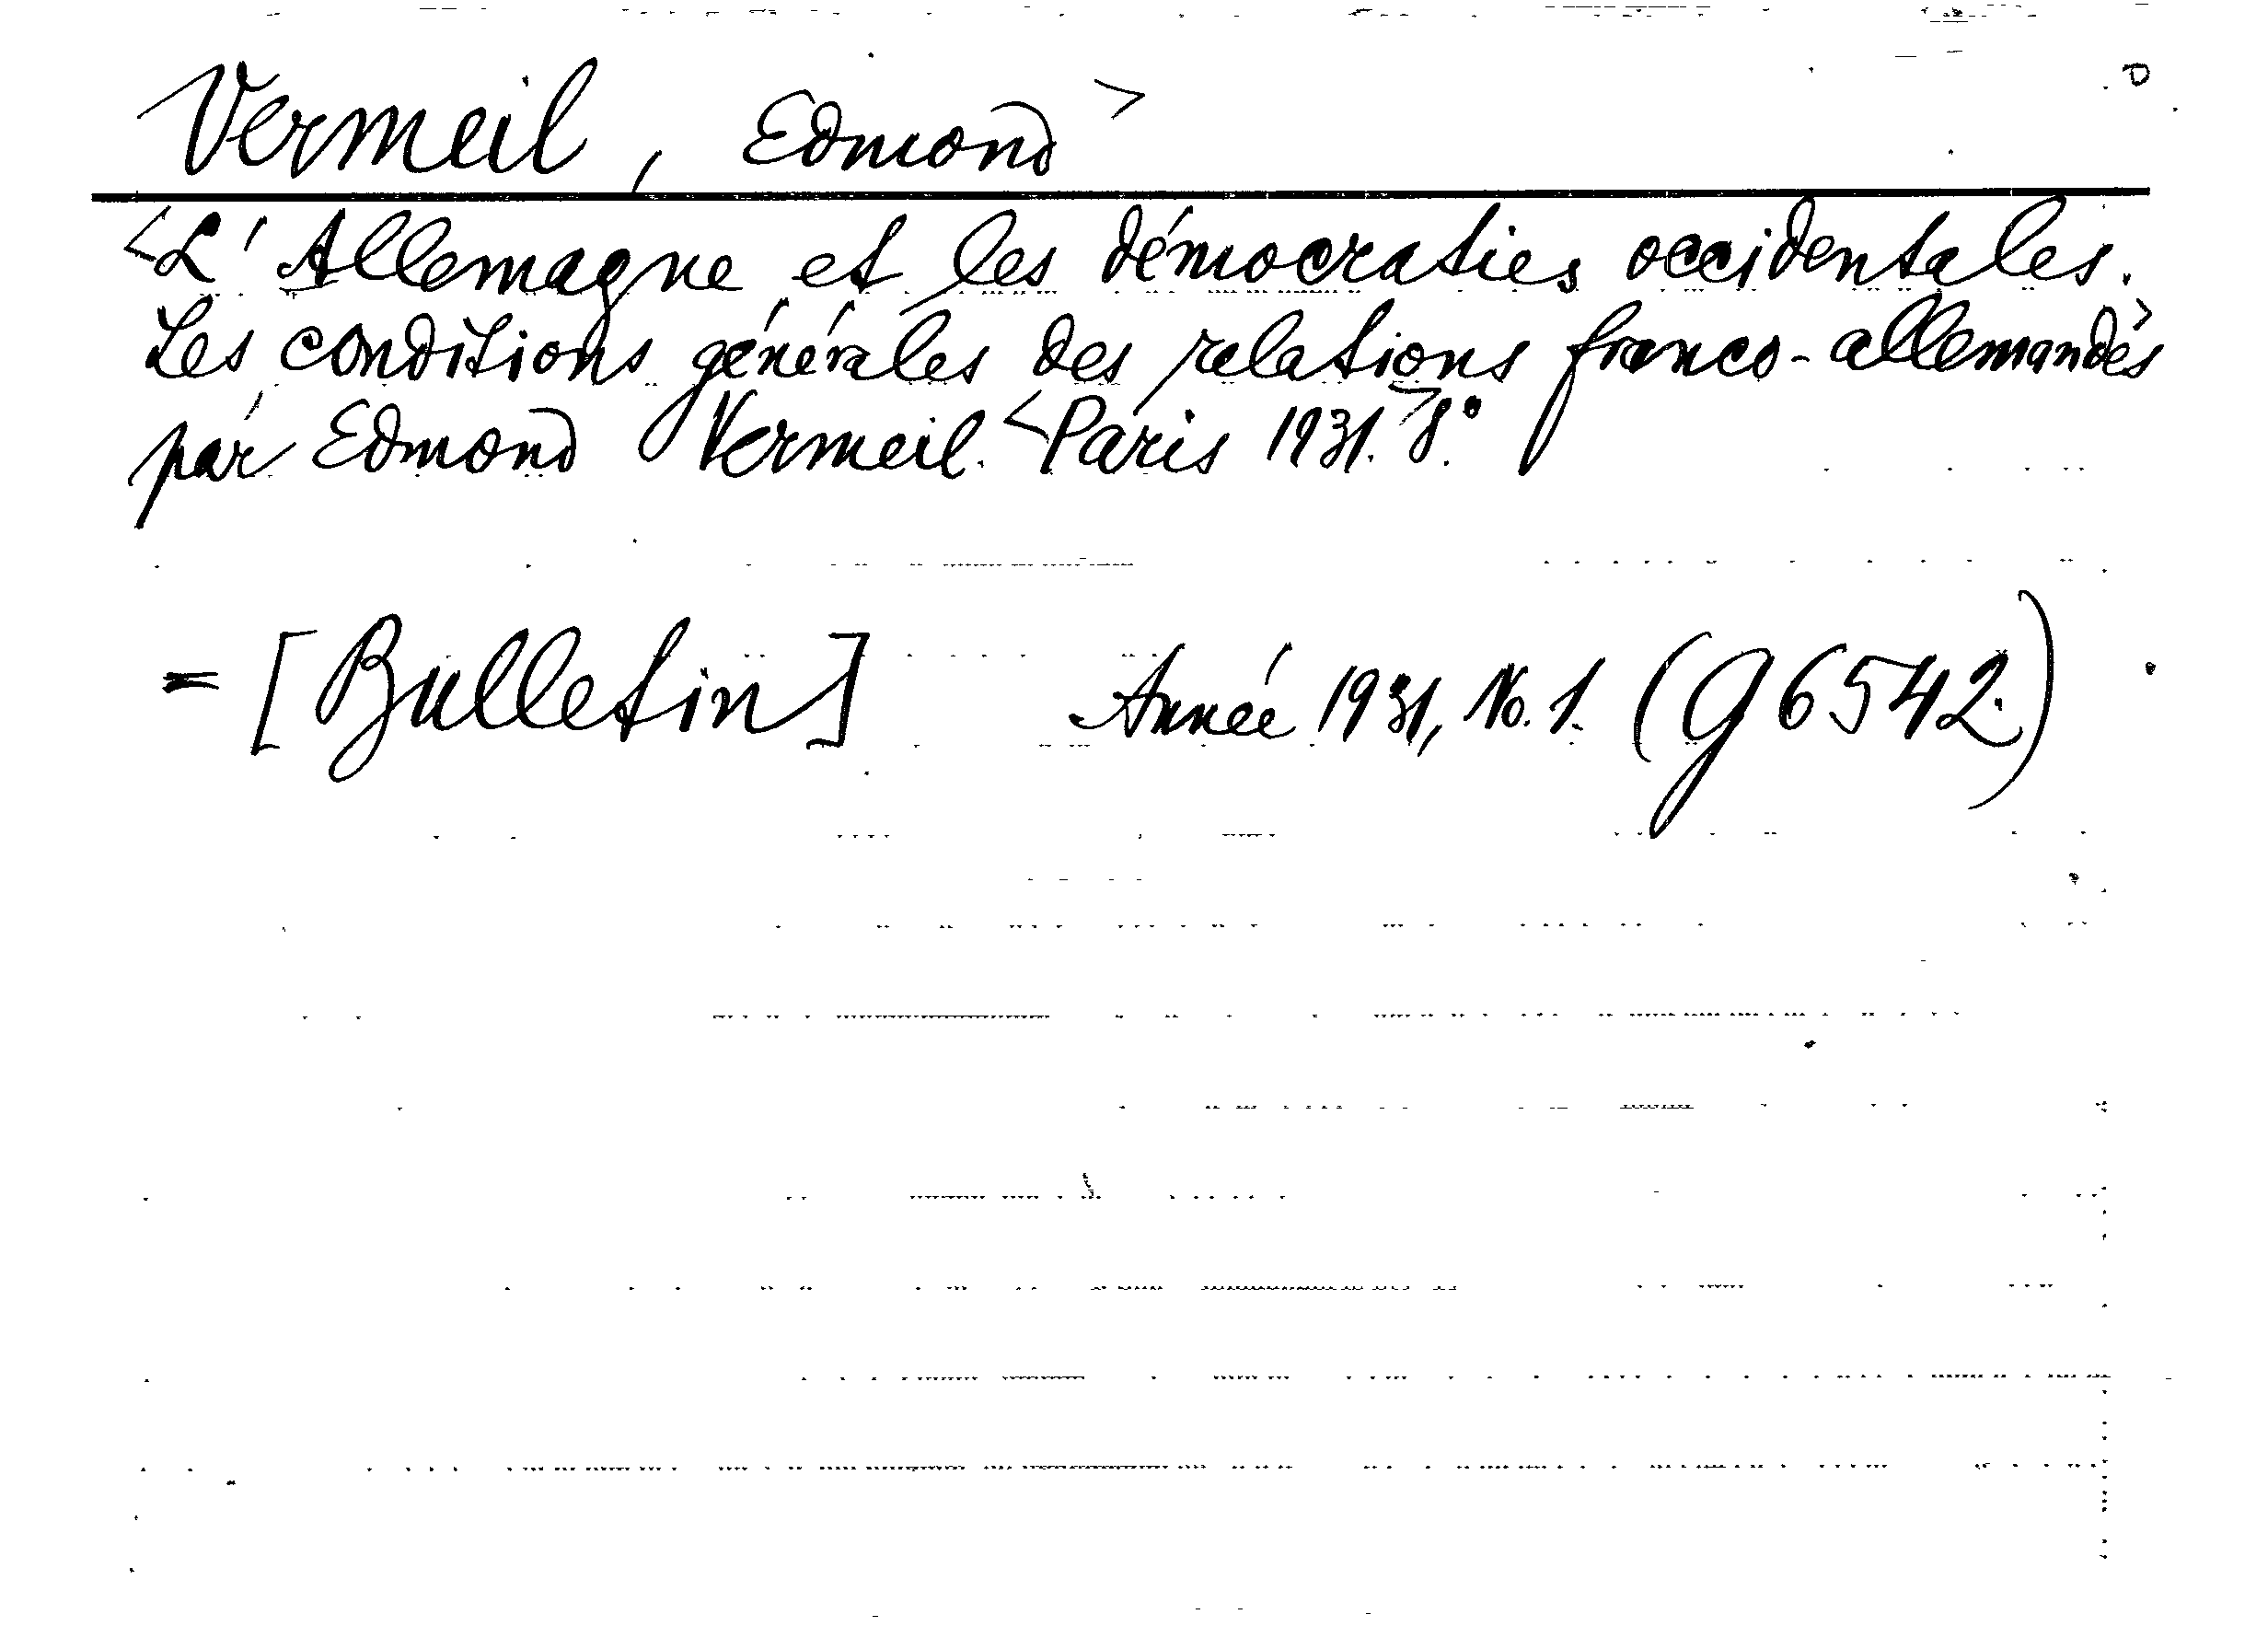 Vermeil, Edmond>
<L'Allemagne et les démocraties occidentales.
Les conditions générales des relations franco-allemandes>
par Edmond Vermeil. <Paris 1931.> 8°.
= [Bulletin] Année 1931, No. 1. (g 6542)